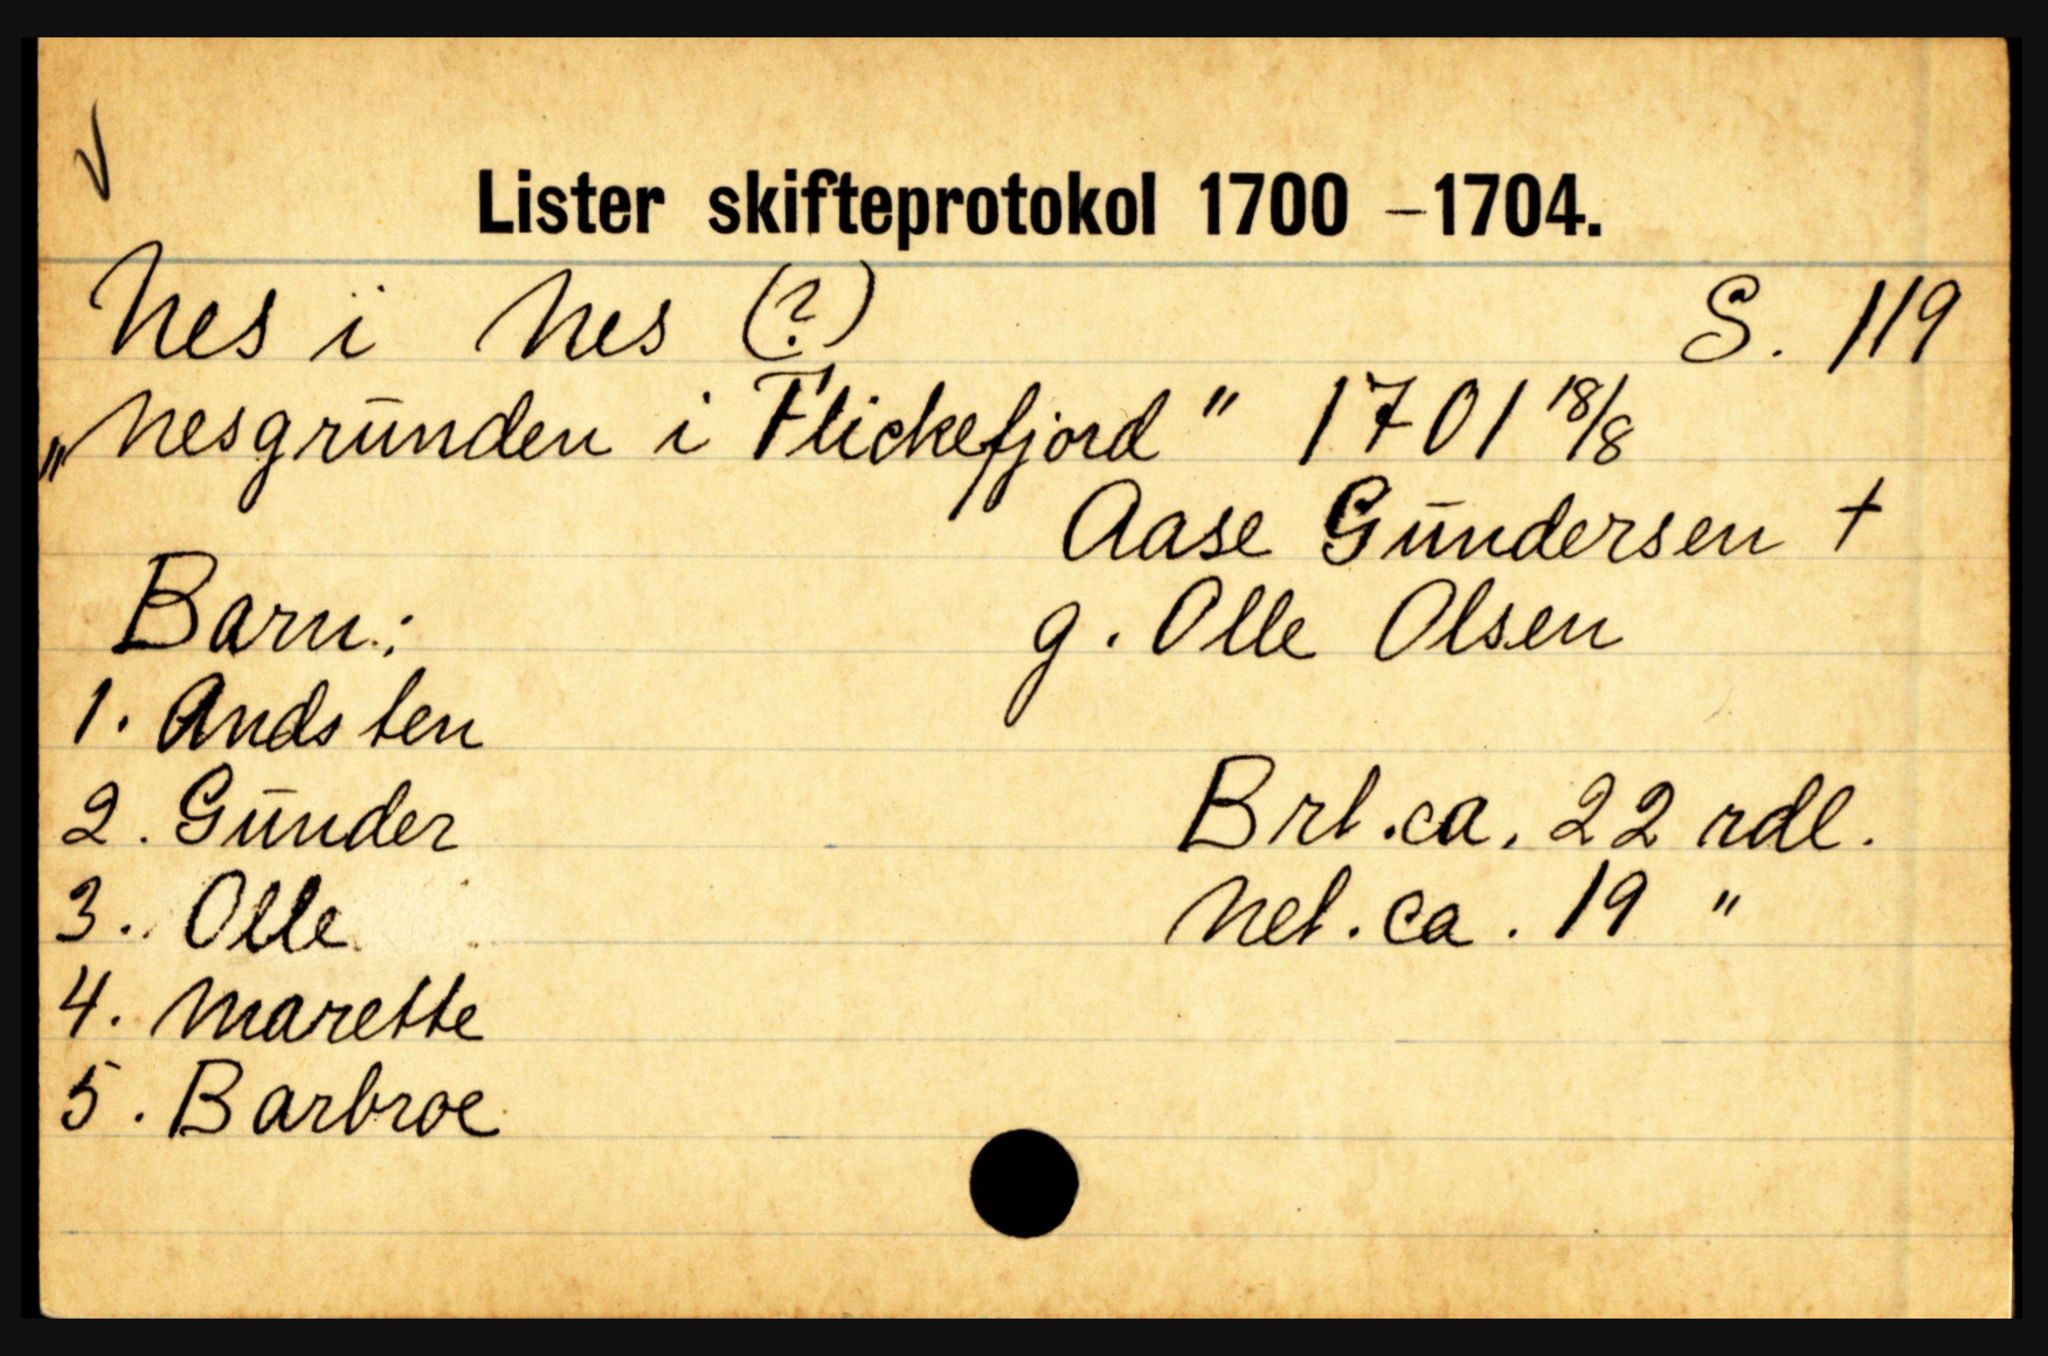 √
Lister skifteprotokol 1700 – 1704.
Nes i Nes (?) S. 119
„Nesgrunden i Flickefjord" 1701 18/8
Aase Gundersen +
Barn: g. Olle Olsen
1. Andsten
2. Gunder Brt. ca. 22 rdl.
3. Olle Net. ca. 19 "
4. Marette
5. Barbroe